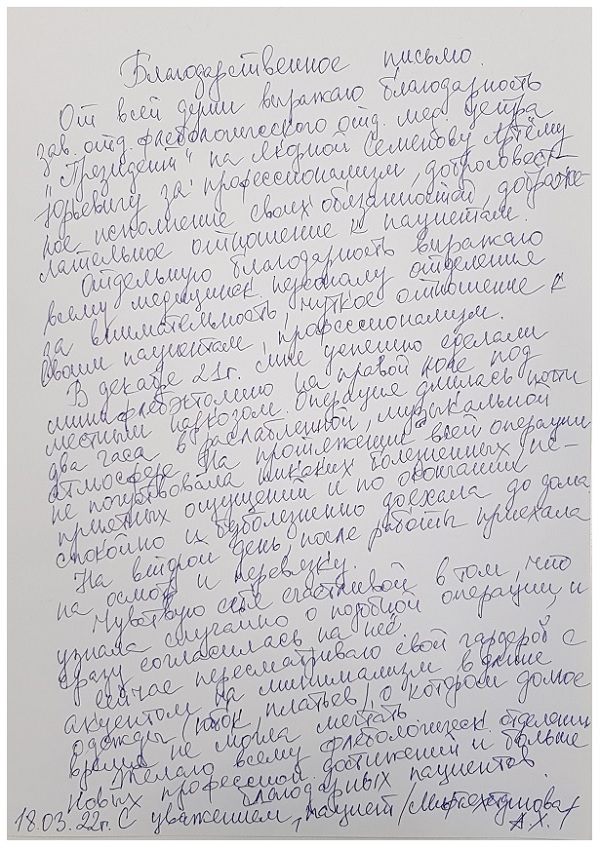 Благодарственное письмо.
От всей души выражаю благодарность
зав. отд. флебологического отд. мед. центра
"Президент" на Ямской Семенову Артёму
Юрьевичу за профессионализм, добросовест-
ное исполнение своих обязанностей, доброже-
лательное отношение к пациентам.
Отдельную благодарность выражаю
всему медицинск. персоналу отделения
за внимательность, чуткое отношение к
своим пациентам, профессионализм.
В декабре 21г. мне успешно сделали
минифлебэктомию на правой ноге под
местным наркозом. Операция длилась почти
два часа в расслабленной, музыкальной
атмосфере. На протяжении всей операции
не почувствовала никаких болезненных, не-
приятных ощущений и по окончании
спокойно и безболезненно доехала до дома.
На второй день, после работы приехала
на осмотр и перевязку.
Чувствую себя счастливой в том, что
узнала случайно о подобной операции, и
сразу согласилась на неё.
Сейчас пересматриваю свой гардероб с
акцентом на минимализм в длине
одежды (юбок, платьев), о котором долгое
время не могла мечтать.
Желаю всему флебологическ. отделению
новых профессион. достижений и больше
благодарных пациентов.
18.03.22г. С уважением, пациент /
А.Х./